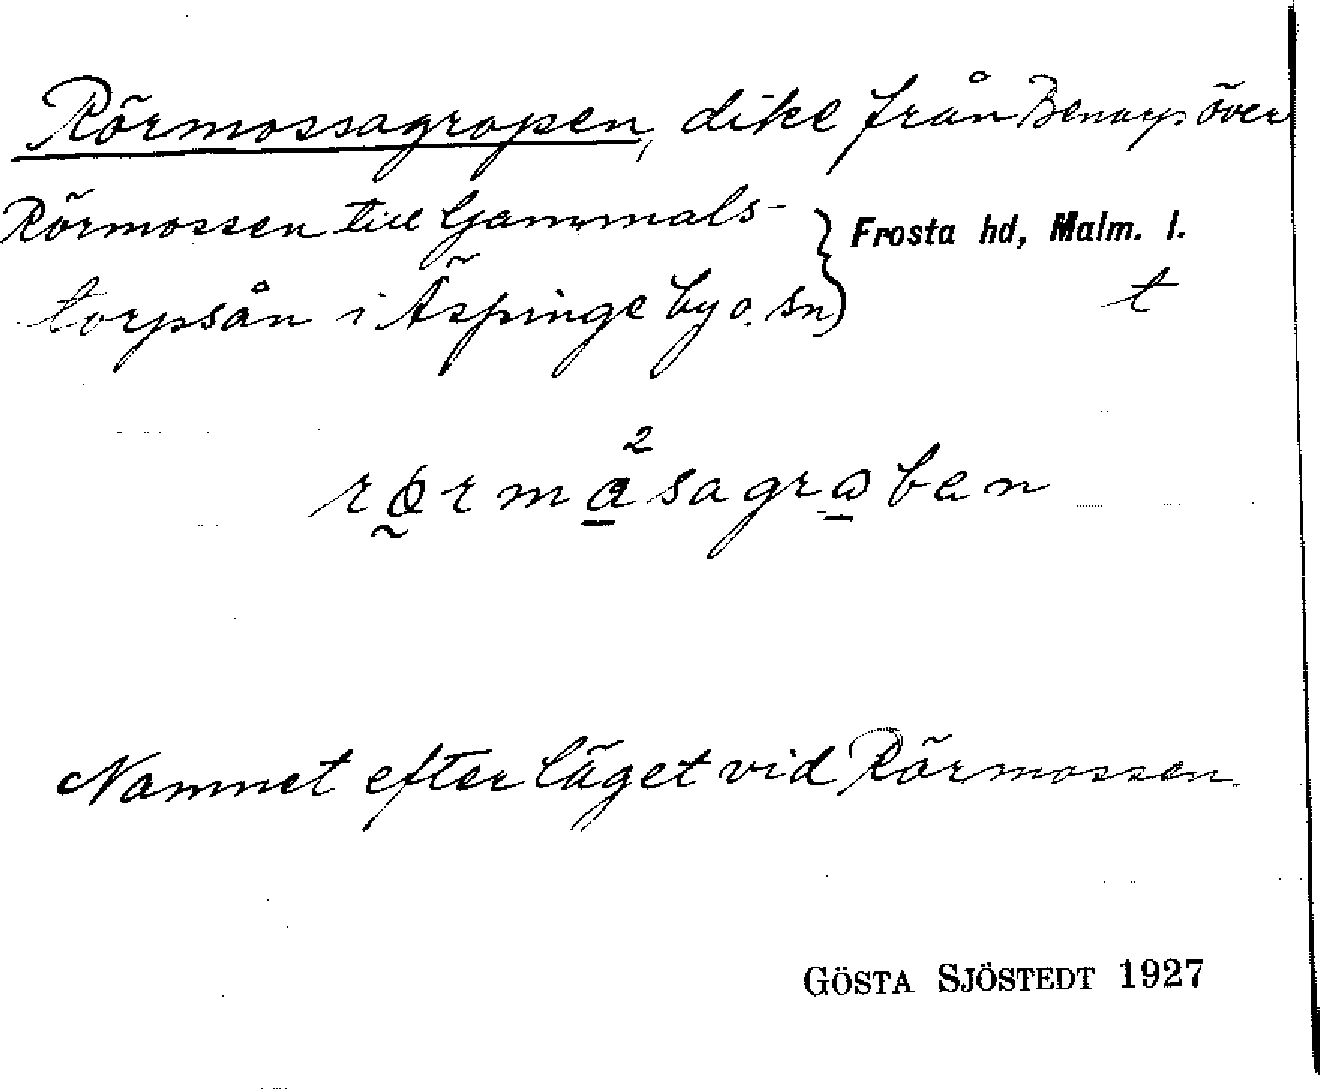 Rörmossagropen, dike från Benarp över
Rörmossen till Gammals-
torpsån i Äspinge by o. sn)
Frosta hd, Malm. l.
t
2
rørmasagrabен
Namnet efter läget vid Rörmossen.
GÖSTA SJÖSTEDT 1927